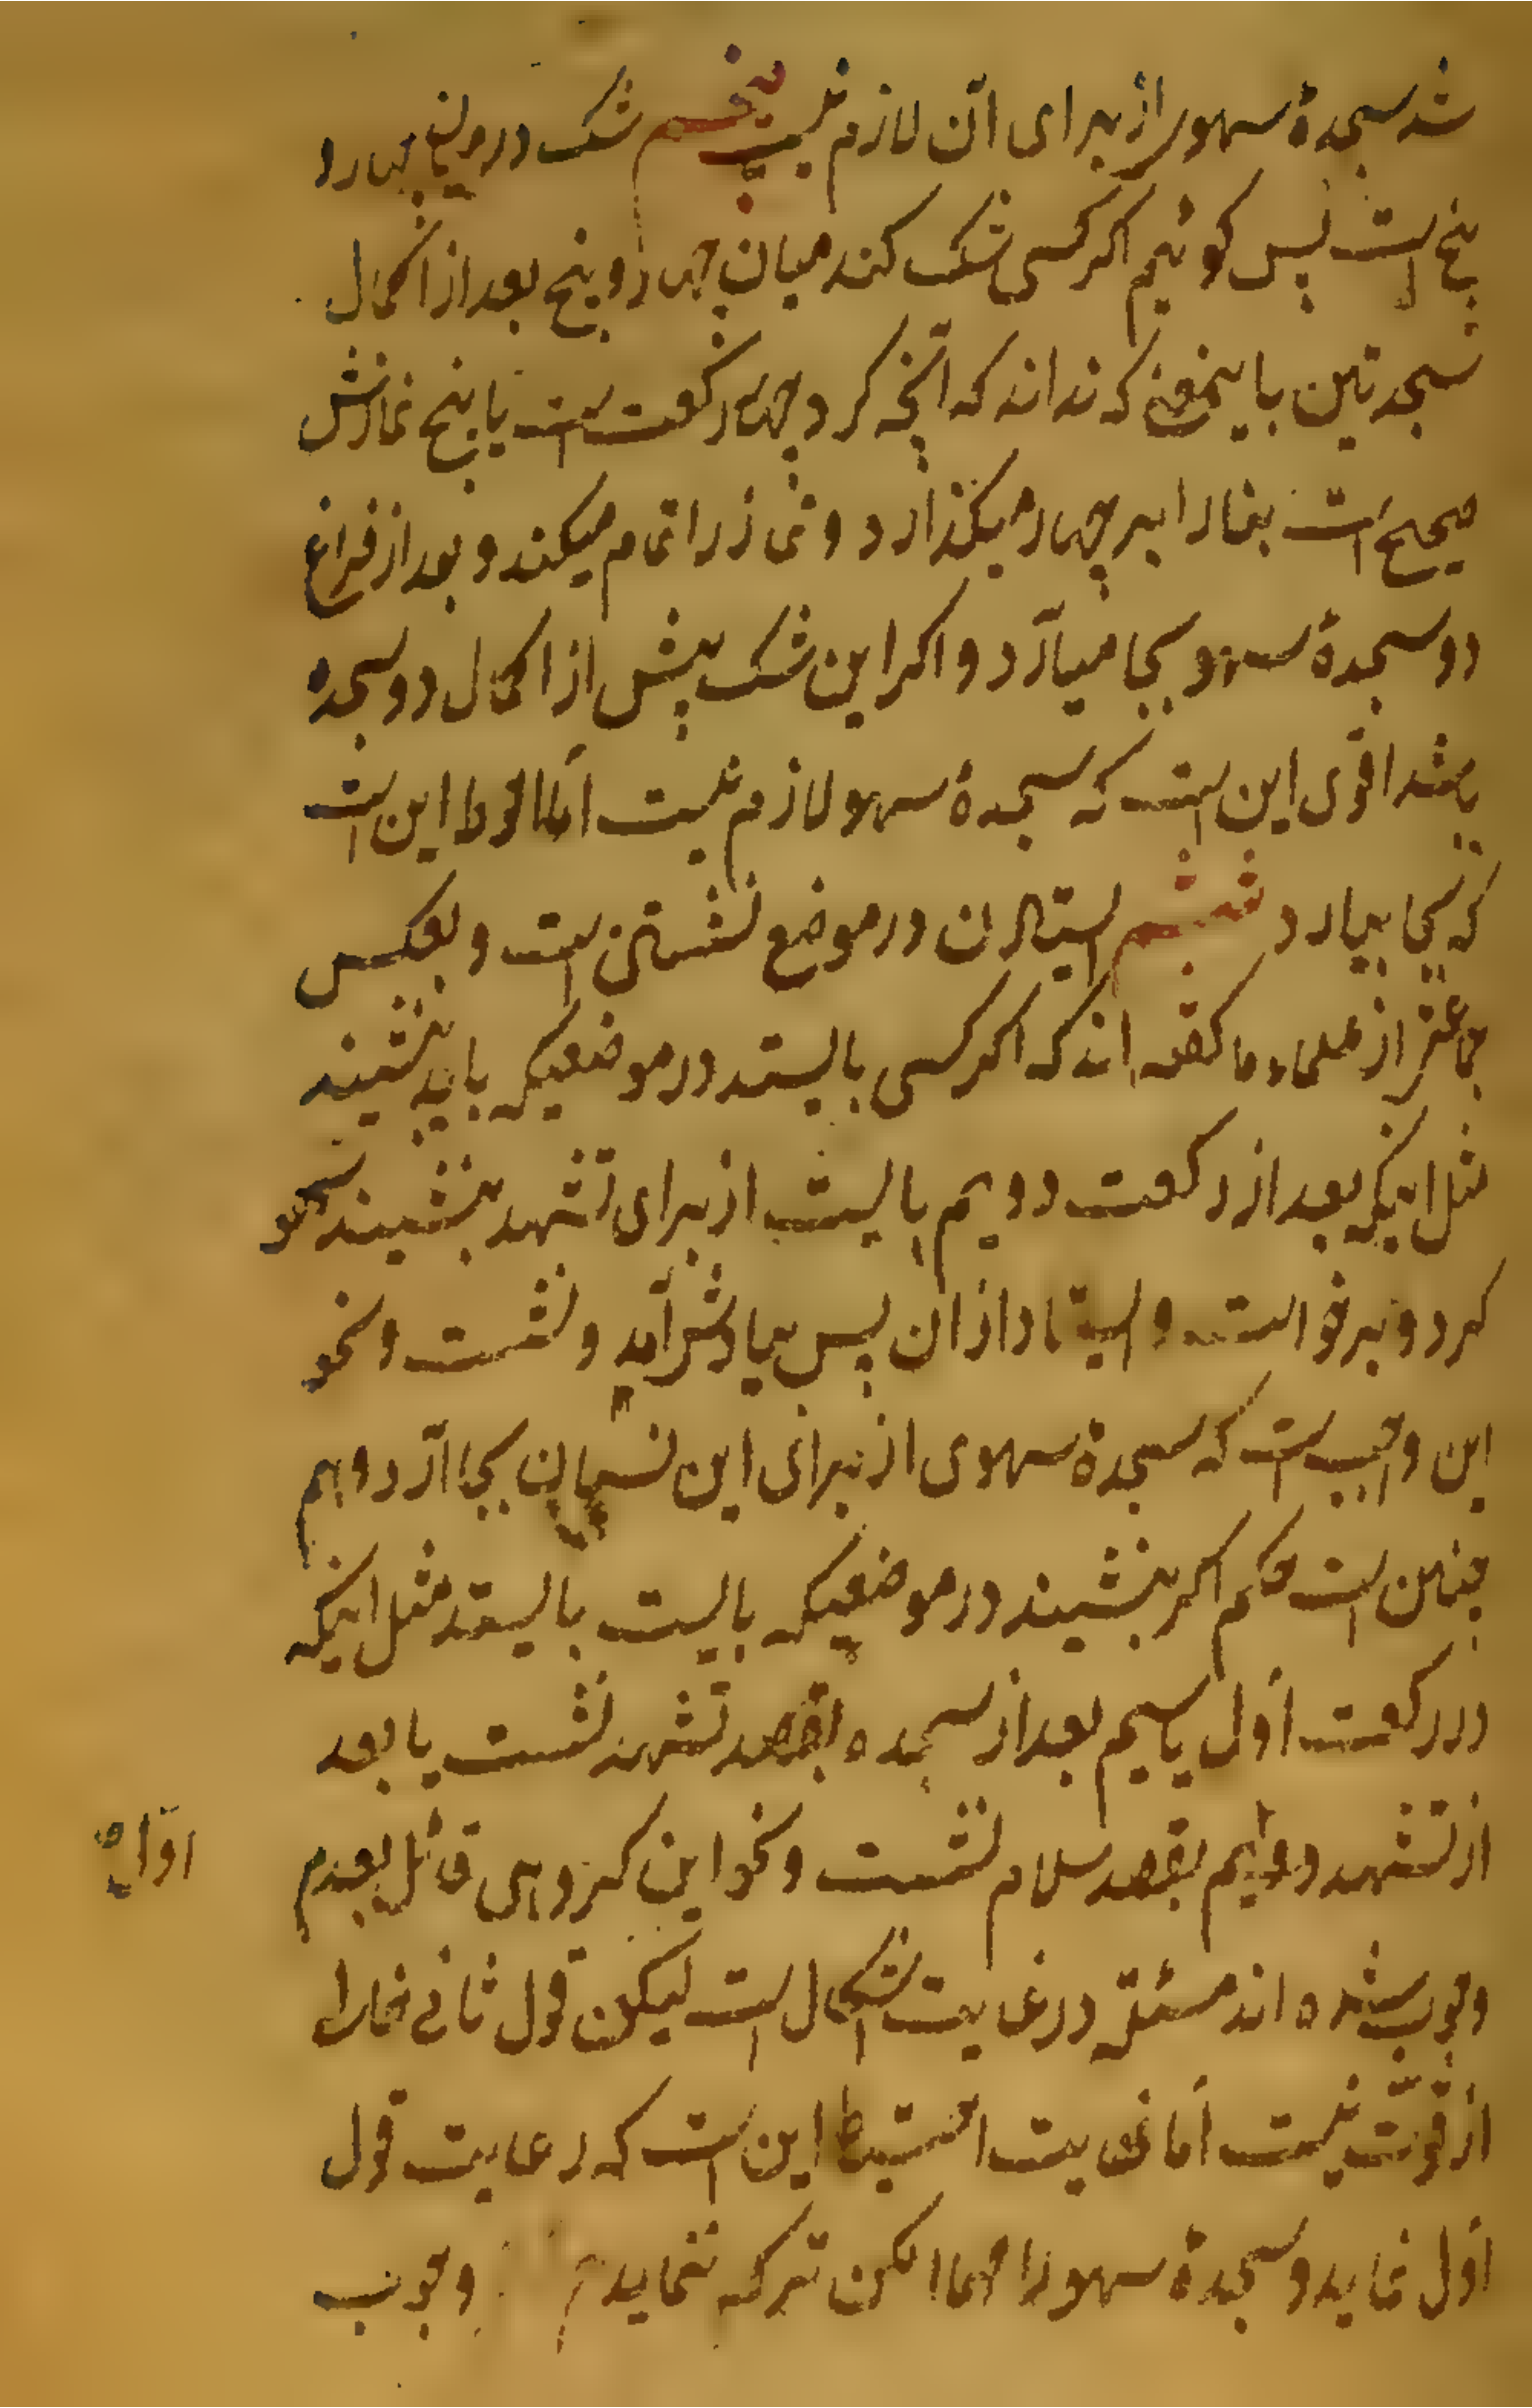 شد سجدهٔ سهو از برای آن لازم نیست پنجم شک در میان چهار و
پنج است پس کوئیم اکر کسی شک کند میان چهار و پنج بعد از اکمال
سجدتین باینمعنی که نداند که آنچه کرد چهار رکعت است یا پنج نمازش
صحیح است بنا را بر چهار میکذارد و نماز را تمام میکند و بعد از فراغ
دو سجدهٔ سهو بجا میآرد و اکر این شک پیش از اکمال دو سجده
باشد اقوی این است که سجدهٔ سهو لازم نیست أما احوط این است
که بجا بیارد ششم ایستادن در موضع نشستن است و بعکس
جماعتی از علماء ما کفته اند که اکر کسی بایستد در موضعیکه باید بنشیند
مثل اینکه بعد از رکعت دویم بایست از برای تشهد بنشیند سهو
کرد و برخواست و ایستاد از ان پس بیادش آمد و نشست و نحو
این واجب است که سجدهٔ سهوی از برای این نسیان بجا آرد و هم
چنین است حکم اکر بنشیند در موضعیکه بایست بایستد مثل اینکه
در رکعت أول یا سیم بعد از سجده بقصد تشهد نشست یا بعد
از تشهد دویم بقصد سلام نشست و نحو این کروهی قائل بعدم
وجوب شده اند مسئله در غایت اشکال است لیکن قول ثانی خارا
از قوّت نیست أما غایت احتیاط این است که رعایت قول
أول نماید و سجدهٔ سهو را مهما امکن ترک ننماید وجوب
اول